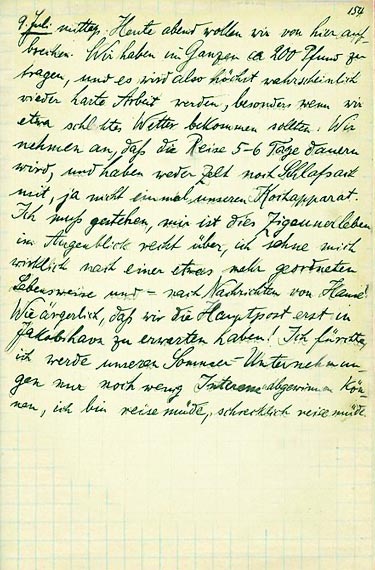 154
9. Juli. mittag. Heute abend wollen wir von hier auf-
brechen. Wir haben im Ganzen ca 200 Pfund zu
tragen, und es wird also höchst wahrscheinlich
wieder harte Arbeit werden, besonders wenn wir
etwa schlechtes Wetter bekommen sollten. Wir
nehmen an, daß die Reise 5-6 Tage dauern
wird, und haben weder Zelt noch Schlafsack
mit, ja nicht einmal unseren Kochapparat.
Ich muß gestehen, mir ist dies Zigeunerleben
im Augenblick recht über, ich sehne mich
wirklich nach einer etwas mehr geordneten
Lebensweise und - nach Nachrichten von Hause.
Wie ärgerlich, daß wir die Hauptpost erst in
Jakobshavn zu erwarten haben! Ich fürchte,
ich werde unseren Sommer-Unternehmun-
gen nur noch wenig Interesse abgewinnen kön-
nen, ich bin reisemüde, schrecklich reisemüde.